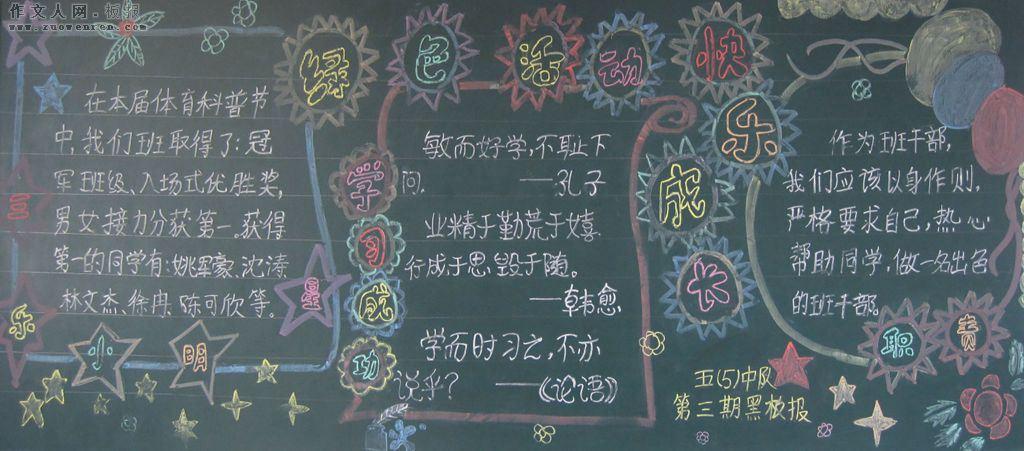 作文人网·板报
www.zuowenren.com
绿色活动快乐成长
在本届体育科普节
中,我们班取得了:冠
军班级、入场式优胜奖,
男女接力分获第一。获得
第一的同学有:姚军豪、沈涛
林文杰、徐冉、陈可欣等。
三乐小明星
学习成功
敏而好学,不耻下
问。——孔子
业精于勤荒于嬉
行成于思,毁于随。
——韩愈
学而时习之,不亦
说乎?——《论语》
作为班干部,
我们应该以身作则,
严格要求自己,热心
帮助同学,做一名出色
的班干部。
职责
五(5)中队
第三期黑板报